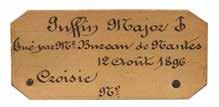 Puffin Major ♂
Tué par Mr Bureau de Nantes
12 Août 1896
Croisic
No